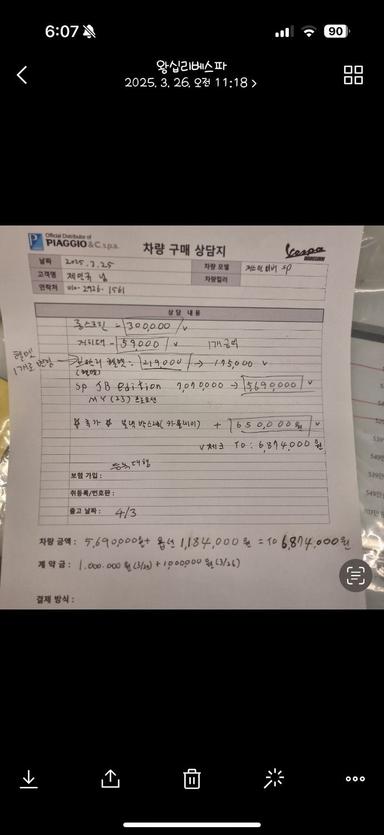 6:07
90
왕십리베스파
2025. 3. 26. 오전 11:18 >
Official Distributor of
PIAGGIO & C. s.p.a.
차량 구매 상담지
Vespa
날짜 2025. 3. 25 차량 모델
고객명 님 차량컬러
연락처 010-2926-1561
상 담 내 용
롱스크린 = 300,000 v
거치대 = 59,000 v
219,000 → 175,000 v
SP JB Edition 7,090,000 → 5,690,000 v
MY (23)
추가 + 650,000원 v
v 체크 TO: 6,874,000원
보험 가입 :
취등록/번호판 :
출고 날짜 : 4/3
차량 금액 : 5,690,000원 + 옵션 1,184,000원 = TO 6,874,000원
계 약 금 : 1,000,000원 (3/25) + 1,000,000원 (3/26)
결제 방식 :